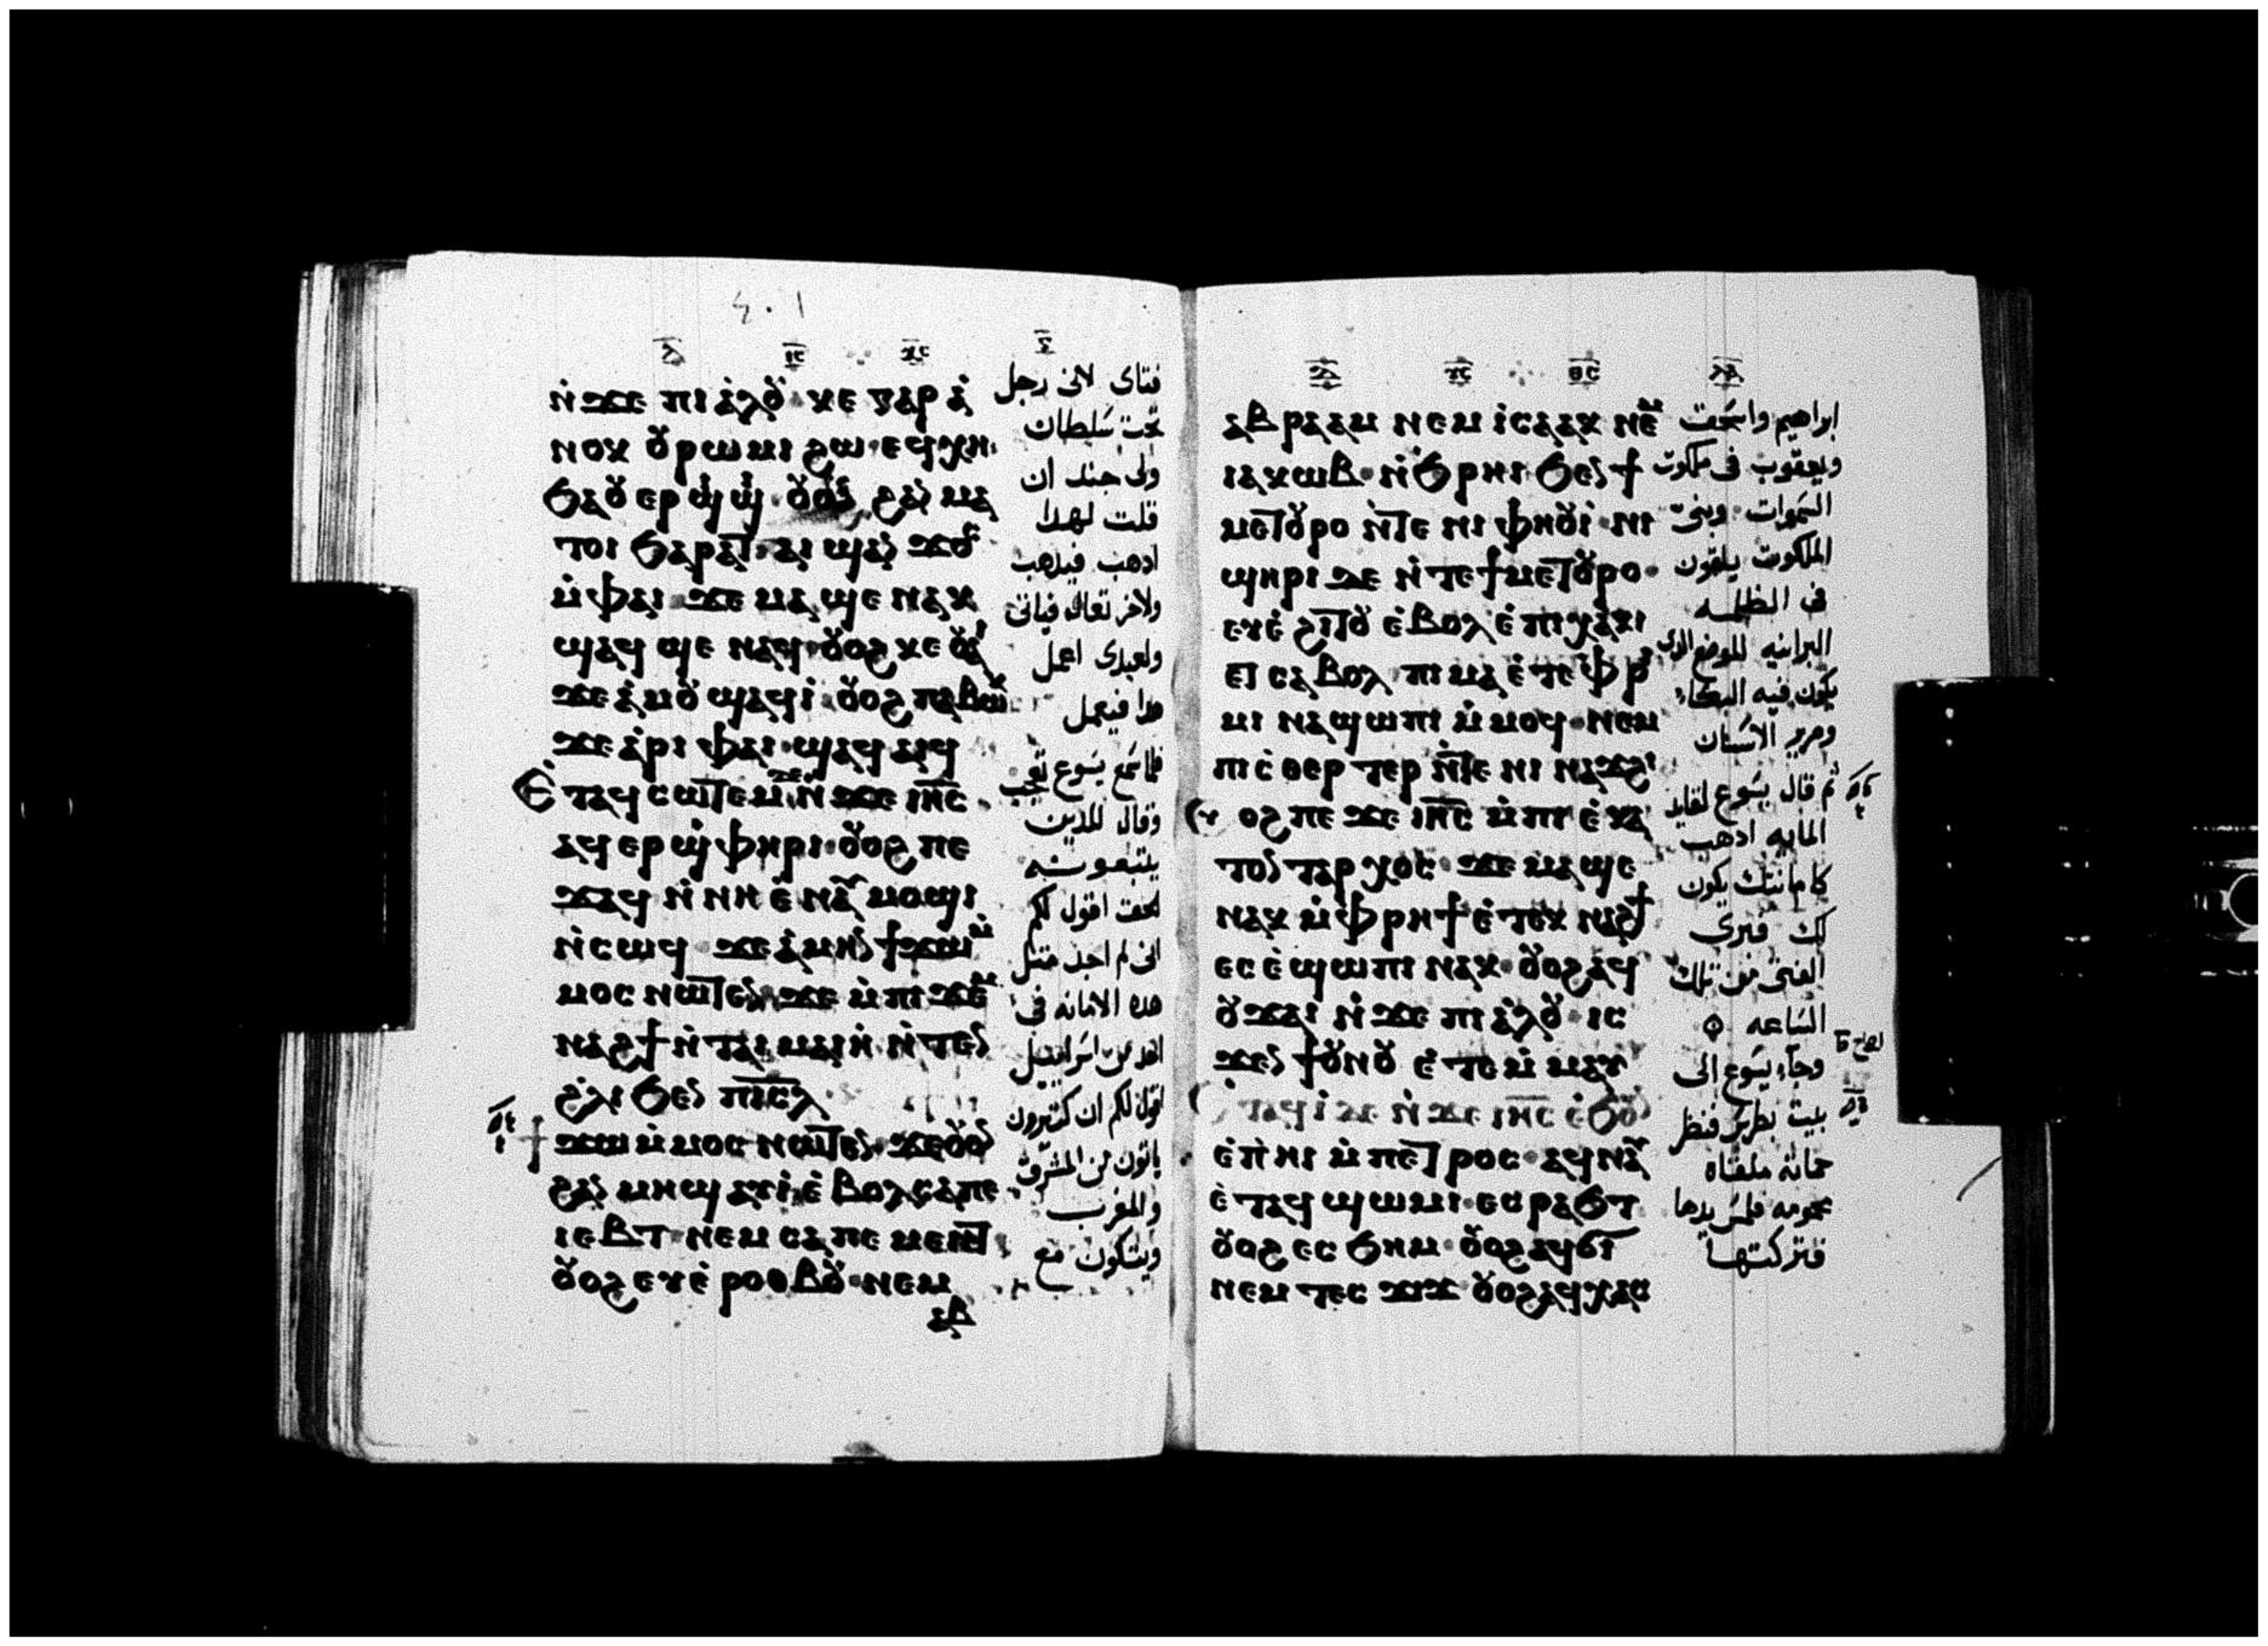 ⲛ̇ϫⲉ ⲡⲓⲁ̇ⲗⲟⲩ ⲕⲉ ⲅⲁⲣ ⲁ̇
ⲛⲟⲕ ⲟⲩⲣⲱⲙⲓ ϩⲱ ⲉϥⲭⲏ
ϧⲁⲟⲩⲉⲣϣⲓϣⲓ ⲟⲩⲟⲛ ϩⲁⲛⲙⲁ
ⲧⲟⲓ ϧⲁⲣⲁⲧ ⲁⲓϣⲁⲛϫⲟⲥ
ⲙ̇ⲫⲁⲓ ϫⲉ ⲙⲁϣⲉ ⲛⲁⲕ
ϣⲁϥϣⲉ ⲛⲁϥ ⲟⲩⲟϩ ⲕⲉⲟⲩⲁⲓ
ϫⲉ ⲁ̇ⲙⲟⲩ ϣⲁϥⲓ̇ ⲟⲩⲟϩ ⲡⲁⲃⲱⲕ
ϫⲉ ⲁ̇ⲣⲓ ⲫⲁⲓ ϣⲁϥⲁⲓϥ
Ⲉ̇ⲧⲁϥⲥⲱⲧⲉⲙ ⲇⲉ ⲛ̇ϫⲉ ⲓⲏ̅ⲥ̅
ⲁϥⲉⲣϣ̇ⲫⲏⲣⲓ ⲟⲩⲟϩ ⲡⲉ
ϫⲁϥ ⲛ̇ⲛⲏ ⲉ̇ⲛⲁⲩⲙⲟϣⲓ
ⲛ̇ⲥⲱϥ ϫⲉ ⲁ̇ⲙⲏⲛ ϯϫⲱ ⲙ̇
ⲙⲟⲥ ⲛⲱⲧⲉⲛ ϫⲉ ⲙ̇ⲡⲓϫⲉⲙ
ⲛⲁϩϯ ⲛ̇ⲧⲁⲓⲙⲁⲓⲏ ⲛ̇ⲧⲉⲛ
ϩ̇ⲗⲓ ϧⲉⲛ ⲡⲓⲥ̅ⲗ̅
ϯϫⲱ ⲙ̇ⲙⲟⲥ ⲛⲱⲧⲉⲛ ϫⲉ ⲟⲩⲟⲛ
ϩⲁⲛⲙⲏϣ ⲁⲩⲓ̇ ⲉ̇ⲃⲟⲗ ⲥⲁ ⲡⲉ
ⲓⲉⲃⲧ ⲛⲉⲙ ⲥⲁ ⲡⲉⲙⲉⲛⲧ
ⲟⲩⲟϩ ⲉⲩⲉ̇ⲣⲟⲑⲃⲟⲩ ⲛⲉⲙ
ⲁⲃ
فتاى لانى رجل
تحت سلطان
ولى جند ان
قلت لهدا
ادهب فيدهب
ولاخر تعال فياتى
ولعبدى اعمل
هدا فيعمل
فلما سمع يسوع تعجب
وقال للدين
يتبعونه
الحق اقول لكم
انى لم اجد متل
هده الامانه فى
احد من اسراييل
اقول لكم ان كتيرون
ياتون من المشرق
والمغرب
ويتكون مع
ⲁⲃⲣⲁⲁⲙ ⲛⲉⲙ ⲓⲥⲁⲁⲕ ⲛⲉⲙ
ⲓⲁⲕⲱⲃ ⲛ̇ϧⲣⲏⲓ ϧⲉⲛ ϯ
ⲙⲉⲧⲟⲩⲣⲟ ⲛ̇ⲧⲉ ⲛⲓⲫⲏⲟⲩⲓ̇ ⲛⲓ
ϣⲏⲣⲓ ⲇⲉ ⲛ̇ⲧⲉ ϯⲙⲉⲧⲟⲩⲣⲟ
ⲉⲩⲉ̇ϩⲓⲧⲟⲩ ⲉ̇ⲃⲟⲗ ⲉ̇ⲡⲓⲭⲁⲕⲓ
ⲉⲧⲥⲁⲃⲟⲗ ⲡⲓⲙⲁ ⲉ̇ⲧⲉ ⲫ̇ⲣⲓ
ⲙⲓ ⲛⲁϣⲱⲡⲓ ⲙ̇ⲙⲟϥ ⲛⲉⲙ
ⲡⲓⲥ̇ⲑⲉⲣⲧⲉⲣ ⲛ̇ⲧⲉ ⲛⲓⲛⲁϫϩⲓ
ⲟⲩⲟϩ ⲡⲉϫⲉ ⲓⲏ̅ⲥ̅ ⲙ̇ⲡⲓⲉ̇ⲕⲁ
ⲧⲟⲛⲧⲁⲣⲭⲟⲥ ϫⲉ ⲙⲁϣⲉ
ⲛⲁⲕ ⲙ̇ⲫⲣⲏϯ ⲉ̇ⲧⲉⲕⲛⲁϩϯ
ⲉⲥⲉ̇ϣⲱⲡⲓ ⲛⲁⲕ ⲟⲩⲟϩ ⲁϥ
ⲟⲩϫⲁⲓ ⲛ̇ϫⲉ ⲡⲓⲁ̇ⲗⲟⲩ ⲓⲥ
ϫⲉⲛ ϯⲟⲩⲛⲟⲩ ⲉ̇ⲧⲉⲙ̇ⲙⲁⲩ
ⲉ̇ⲧⲁϥⲓ̇ ⲇⲉ ⲛ̇ϫⲉ ⲓⲏ̅ⲥ̅ ⲉ̇ϧⲟⲩⲛ
ⲉ̇ⲡⲏⲓ ⲙ̇ⲡⲉⲧⲣⲟⲥ ⲁϥⲛⲁⲩ
ⲉ̇ⲧⲁϥϣⲱⲙⲓ ⲉⲥⲣⲁϧⲧ
ⲟⲩⲟϩ ⲉⲥϧⲏⲙ ⲟⲩⲟϩ ⲁϥϭⲓ
ⲛⲉⲙ ⲧⲉⲥϫⲓϫ ⲟⲩⲟϩ ⲁϥⲭⲁⲥ
ابراهيم واسحق
ويعقوب فى ملكوت
السموات وبنى
الملكوت يلقون
فى الظلمه
البرانيه الموضع الدى
يكون فيه البكاء
وصرير الاسنان
ثم قال يسوع لقايد
المايه ادهب
كامانتك يكون
لك فبرى
الفتى من تلك
الساعه
وجاء يسوع الى
بيت بطرس فنظر
حماته ملقاه
محمومه فلمس يدها
فتركتها